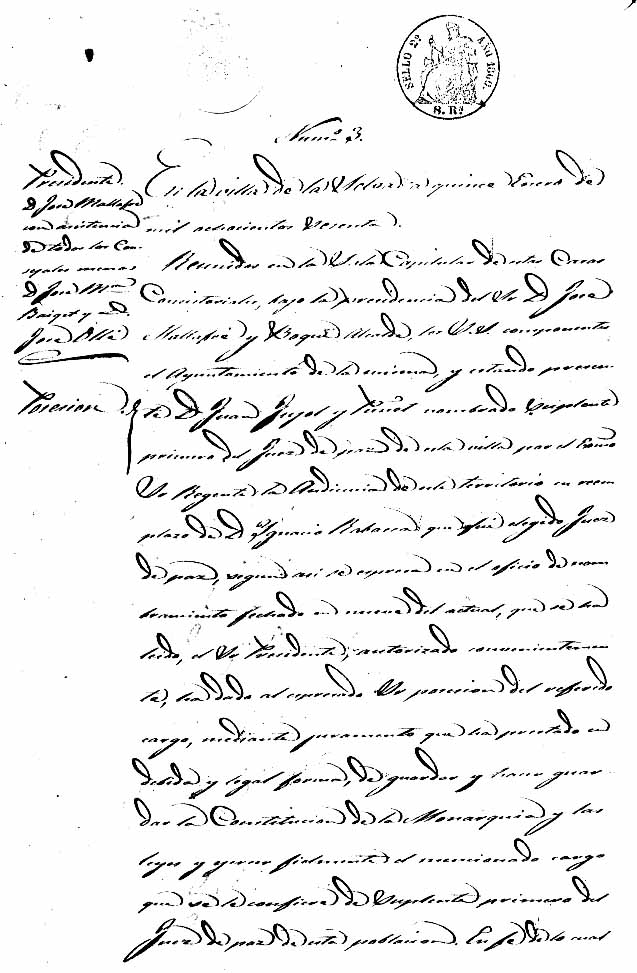 SELLO 2º AÑO 1860.
8. Rs
Numº 3.
Presidente.
D. José Mallafré
con asistencia
de todos los Con-
cejales menos
D. José Mª
Baiget y D.
José Ollé
Posesion
En la villa de la Selva a quince Enero de
mil ochocientos sesenta.
Reunidos en la Sala Capitular de estas Casas
Consistoriales, bajo la presidencia del Sr D. José
Mallafré y Boqué Alcalde, los S.S. componentes
el Ayuntamiento de la misma, y estando presen-
te D. Juan Pujol y nombrado Suplente
primero del Juez de paz de esta villa por el Exmo
Sr Regente la Audiencia de este territorio en reem-
plazo de D. Ygnacio Rabassa que fué elegido Juez
de paz, segun asi se espresa en el oficio de nom-
bramiento fechado en nueve del actual, que se ha
leido, el Sr Presidente, autorizado convenientemen-
te, ha dado al espresado Sr posesion del referido
cargo, mediante juramento que ha prestado en
debida y legal forma, de guardar y hacer guar-
dar la Constitucion de la Monarquia y las
leyes y ejercer fielmente el mencionado cargo
que se le confiere de Suplente primero del
Juez de paz de esta poblacion. En fe de lo cual